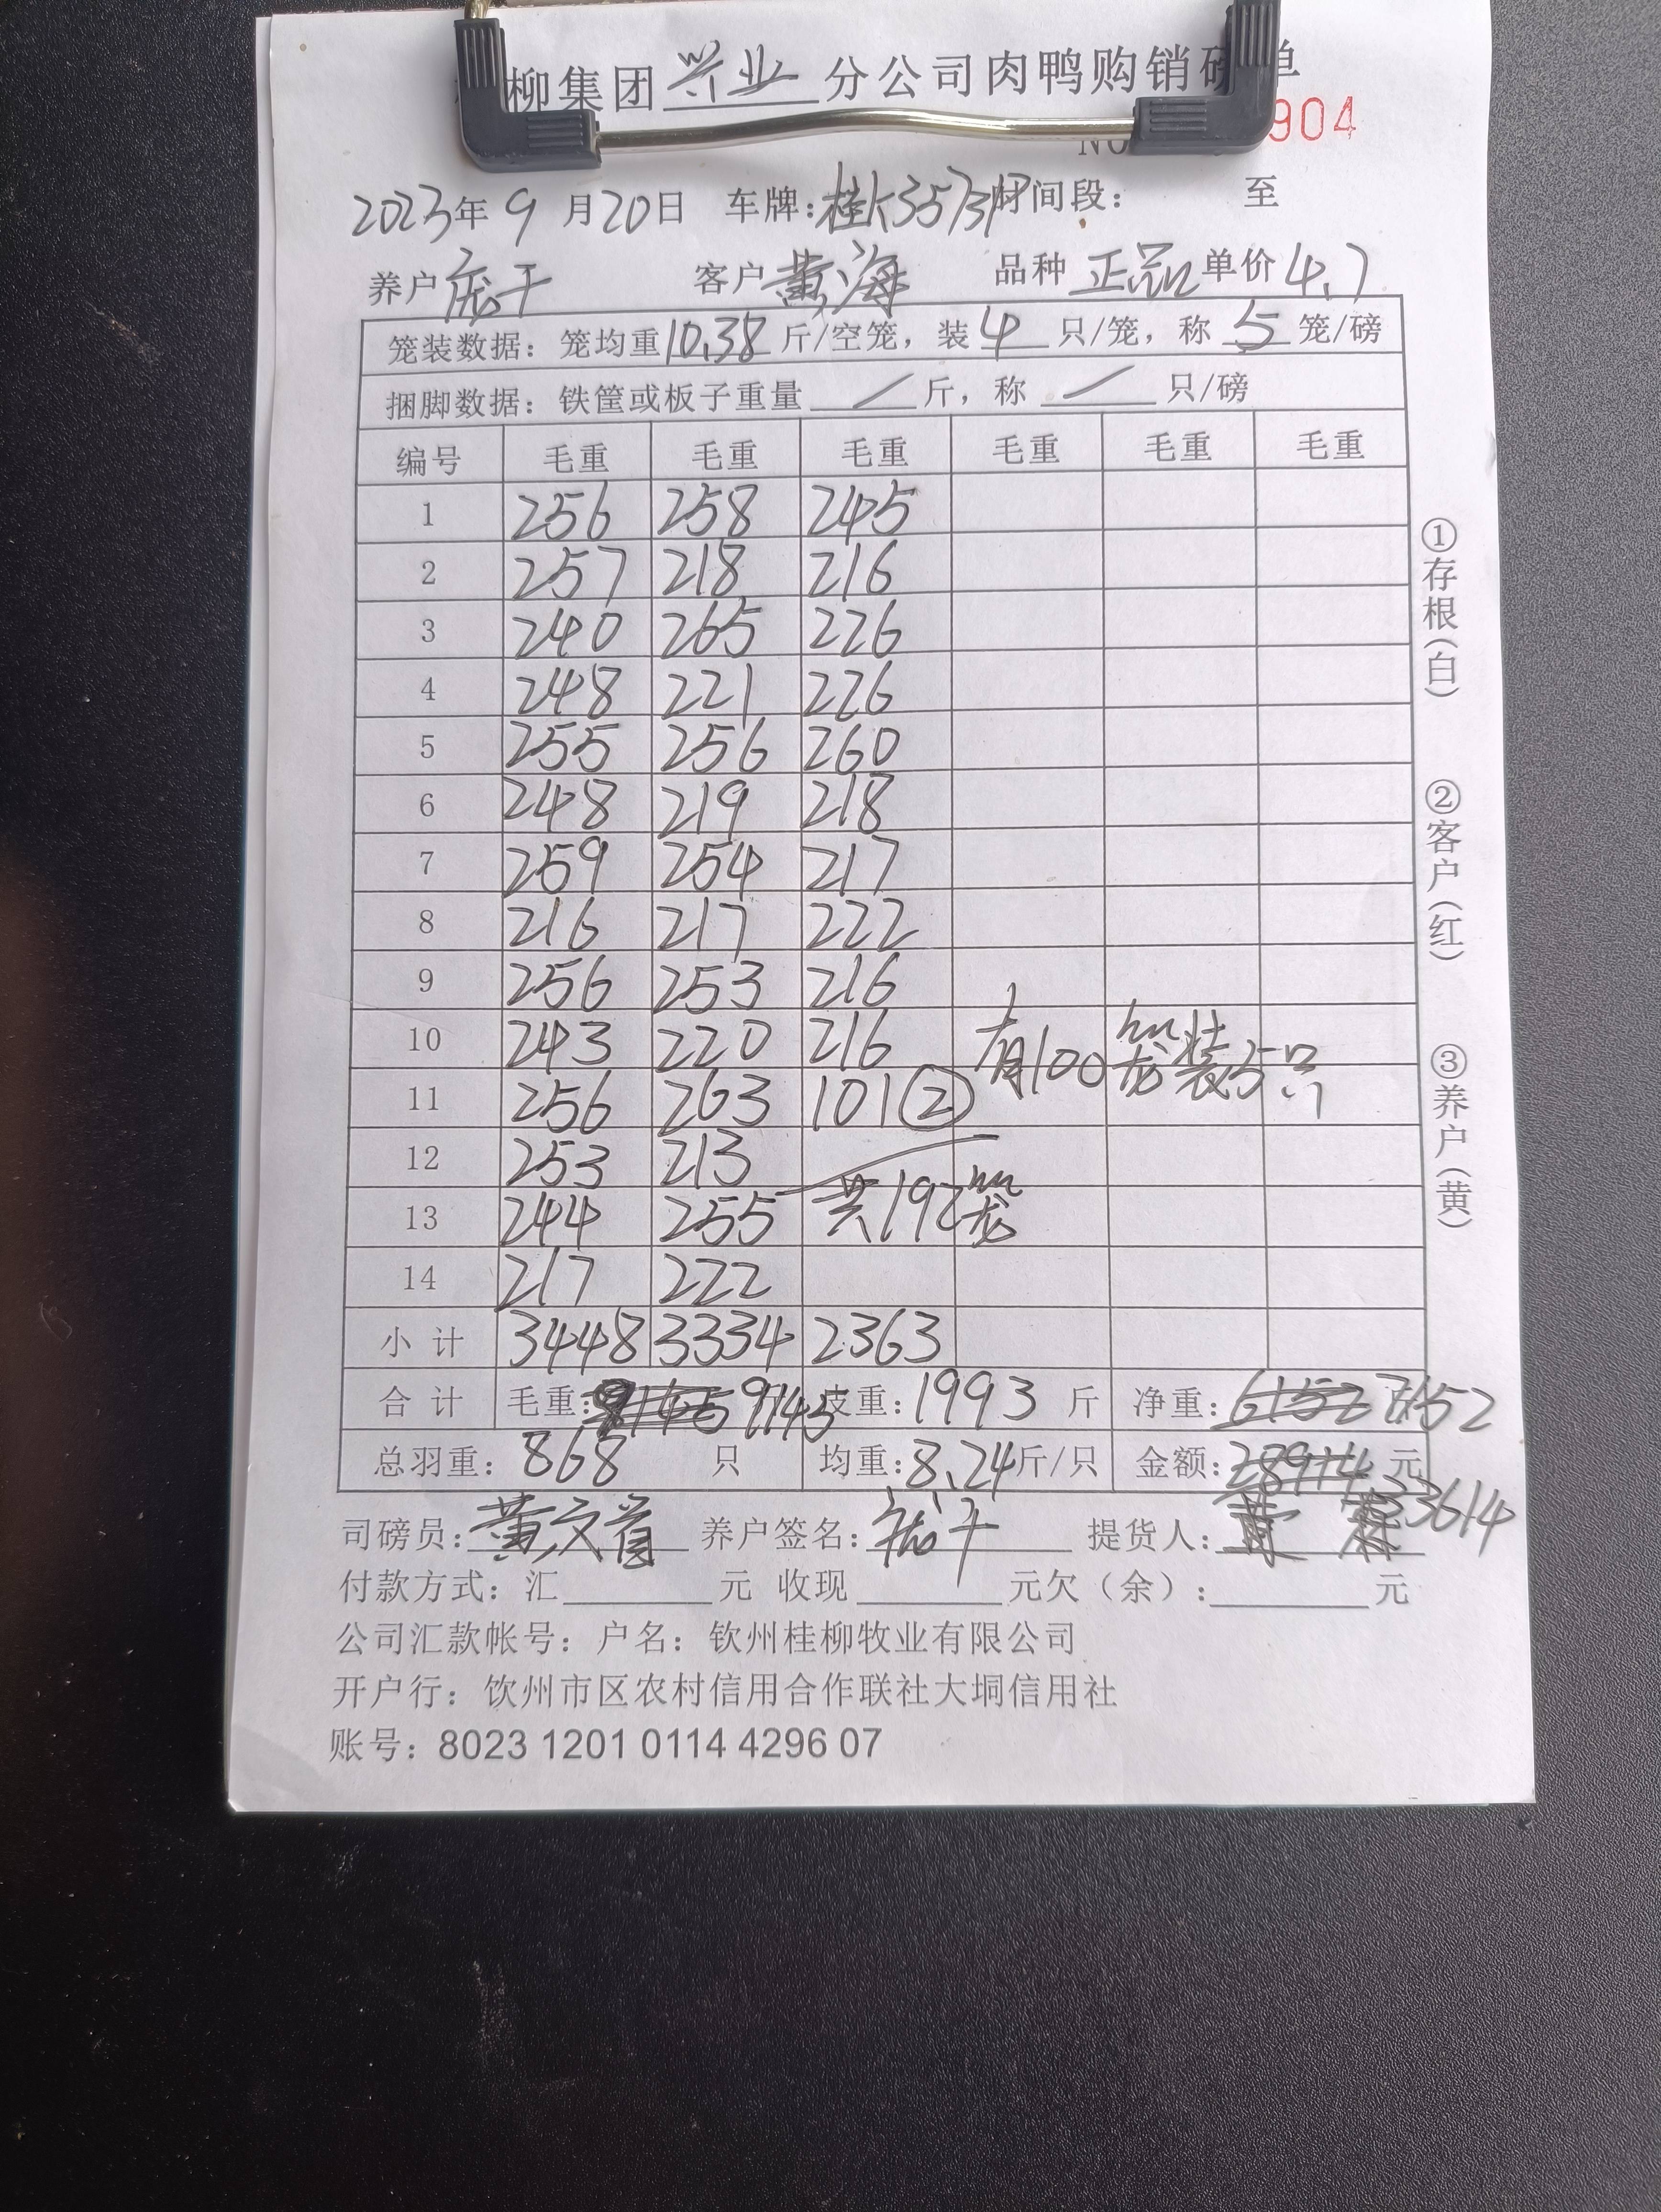 柳集团 兴业 分公司肉鸭购销磅单
NO 904
2023年 9 月 20日 车牌: 时间段: 至
养户 庞干 客户 黄海 品种 正品 单价 4.7
笼装数据: 笼均重 10.38 斤/空笼, 装 4 只/笼, 称 5 笼/磅
捆脚数据: 铁筐或板子重量 / 斤, 称 / 只/磅
编号 毛重 毛重 毛重 毛重 毛重 毛重
1 256 258 245
2 257 218 216
3 240 265 226
4 248 221 226
5 255 256 260
6 248 219 218
7 259 254 217
8 216 217 222
9 256 253 216
10 243 220 216 有100笼装5只
11 256 263 101②
12 253 213
13 244 255 共192笼
14 217 222
小计 3448 3334 2363
合计 毛重: 9145 皮重: 1993 斤 净重: 6152 7152
总羽重: 868 只 均重: 8.24 斤/只 金额: 28914 元 33614
司磅员: 黄文首 养户签名: 提货人:
付款方式: 汇 元 收现 元欠(余): 元
公司汇款帐号: 户名: 钦州桂柳牧业有限公司
开户行: 饮州市区农村信用合作联社大垌信用社
账号: 8023 1201 0114 4296 07
①存根(白)
②客户(红)
③养户(黄)